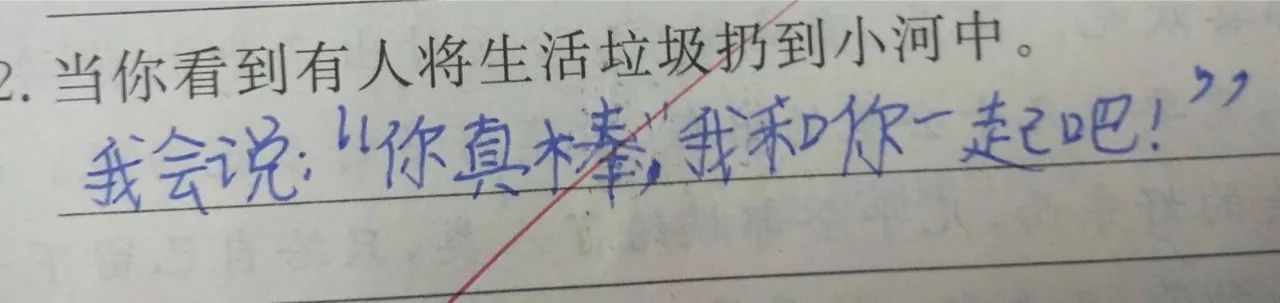 2. 当你看到有人将生活垃圾扔到小河中。
我会说:“你真棒,我和你一起吧!”